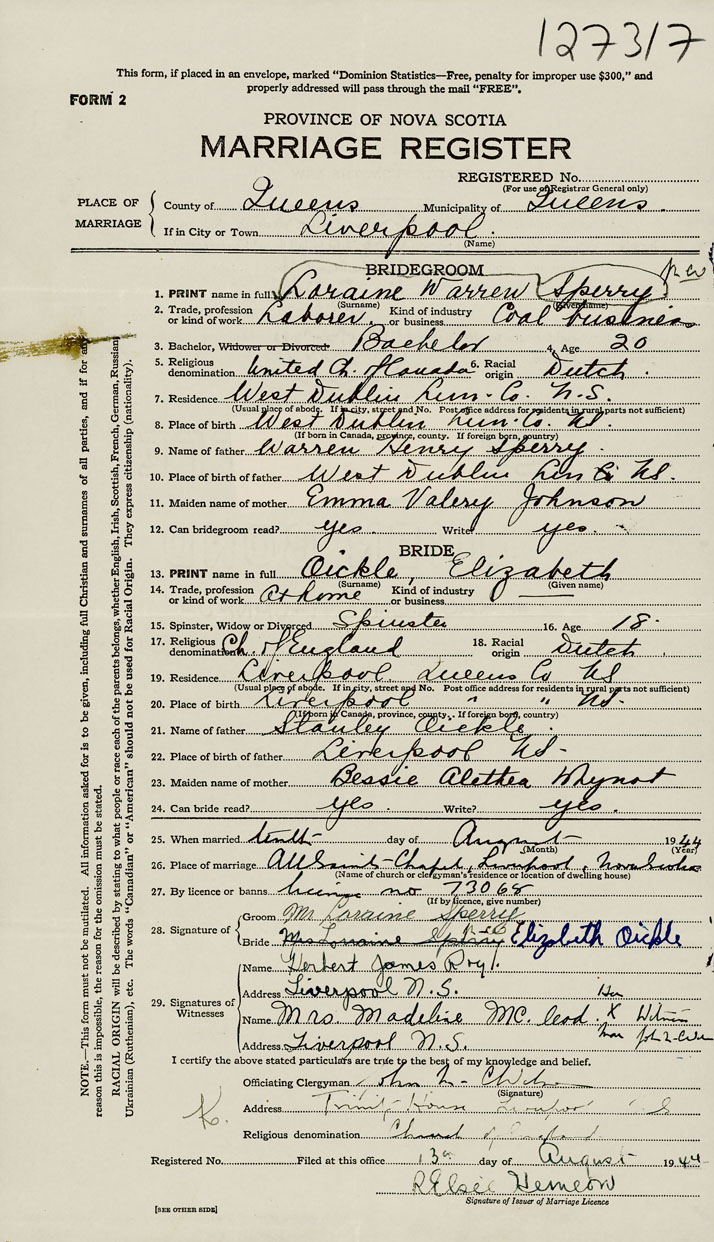 127317
This form, if placed in an envelope, marked "Dominion Statistics—Free, penalty for improper use $300," and
properly addressed will pass through the mail "FREE".
FORM 2
PROVINCE OF NOVA SCOTIA
MARRIAGE REGISTER
REGISTERED No.
(For use of Registrar General only)
PLACE OF MARRIAGE
County of Queens Municipality of Queens
If in City or Town Liverpool.
(Name)
BRIDEGROOM
1. PRINT name in full Loraine Warren Sperry
(Surname) (Given name)
2. Trade, profession or kind of work Laborer. Kind of industry or business Coal business
3. Bachelor, Widower or Divorced Bachelor 4. Age 20
5. Religious denomination United Ch. of Canada 6. Racial origin Dutch.
7. Residence West Dublin Lun. Co. N.S.
(Usual place of abode. If in city, street and No. Post office address for residents in rural parts not sufficient)
8. Place of birth West Dublin Lun. Co. N.S.
(If born in Canada, province, county. If foreign born, country)
9. Name of father Warren Henry Sperry.
10. Place of birth of father West Dublin Lun Co NS.
11. Maiden name of mother Emma Valery Johnson
12. Can bridegroom read? yes. Write yes.
BRIDE
13. PRINT name in full Oickle, Elizabeth
(Surname) (Given name)
14. Trade, profession or kind of work At home Kind of industry or business —
15. Spinster, Widow or Divorced Spinster 16. Age 18.
17. Religious denomination Ch. of England 18. Racial origin Dutch.
19. Residence Liverpool Queens Co NS
(Usual place of abode. If in city, street and No. Post office address for residents in rural parts not sufficient)
20. Place of birth Liverpool " " NS.
(If born in Canada, province, county. If foreign born, country)
21. Name of father Stanley Oickle.
22. Place of birth of father Liverpool NS-
23. Maiden name of mother Bessie Alethea Whynot
24. Can bride read? yes. Write? yes.
25. When married tenth day of August 1944
(Month) (Year)
26. Place of marriage All Saints Chapel, Liverpool, Nova Scotia
(Name of church or clergyman's residence or location of dwelling house)
27. By licence or banns licence no 73068
(If by licence, give number)
28. Signature of
Groom Mr. Loraine Sperry
Bride Mrs Loraine Sperry Elizabeth Oickle
29. Signatures of Witnesses
Name Herbert James Roy.
Address Liverpool N.S.
Her
Name Mrs. Madeline MC. Leod. X Witness
Mark
Address Liverpool N.S.
I certify the above stated particulars are true to the best of my knowledge and belief.
Officiating Clergyman
(Signature)
Address Trinity House Liverpool N S
Religious denomination Church of England
Registered No. Filed at this office 13th day of August 1944
R Elsie Hemeon
Signature of Issuer of Marriage Licence
[SEE OTHER SIDE]
NOTE.—This form must not be mutilated. All information asked for is to be given, including full Christian and surnames of all parties, and if for any
reason this is impossible, the reason for the omission must be stated.
RACIAL ORIGIN will be described by stating to what people or race each of the parents belongs, whether English, Irish, Scottish, French, German, Russian
Ukrainian (Ruthenian), etc. The words "Canadian" or "American" should not be used for Racial Origin. They express citizenship (nationality).